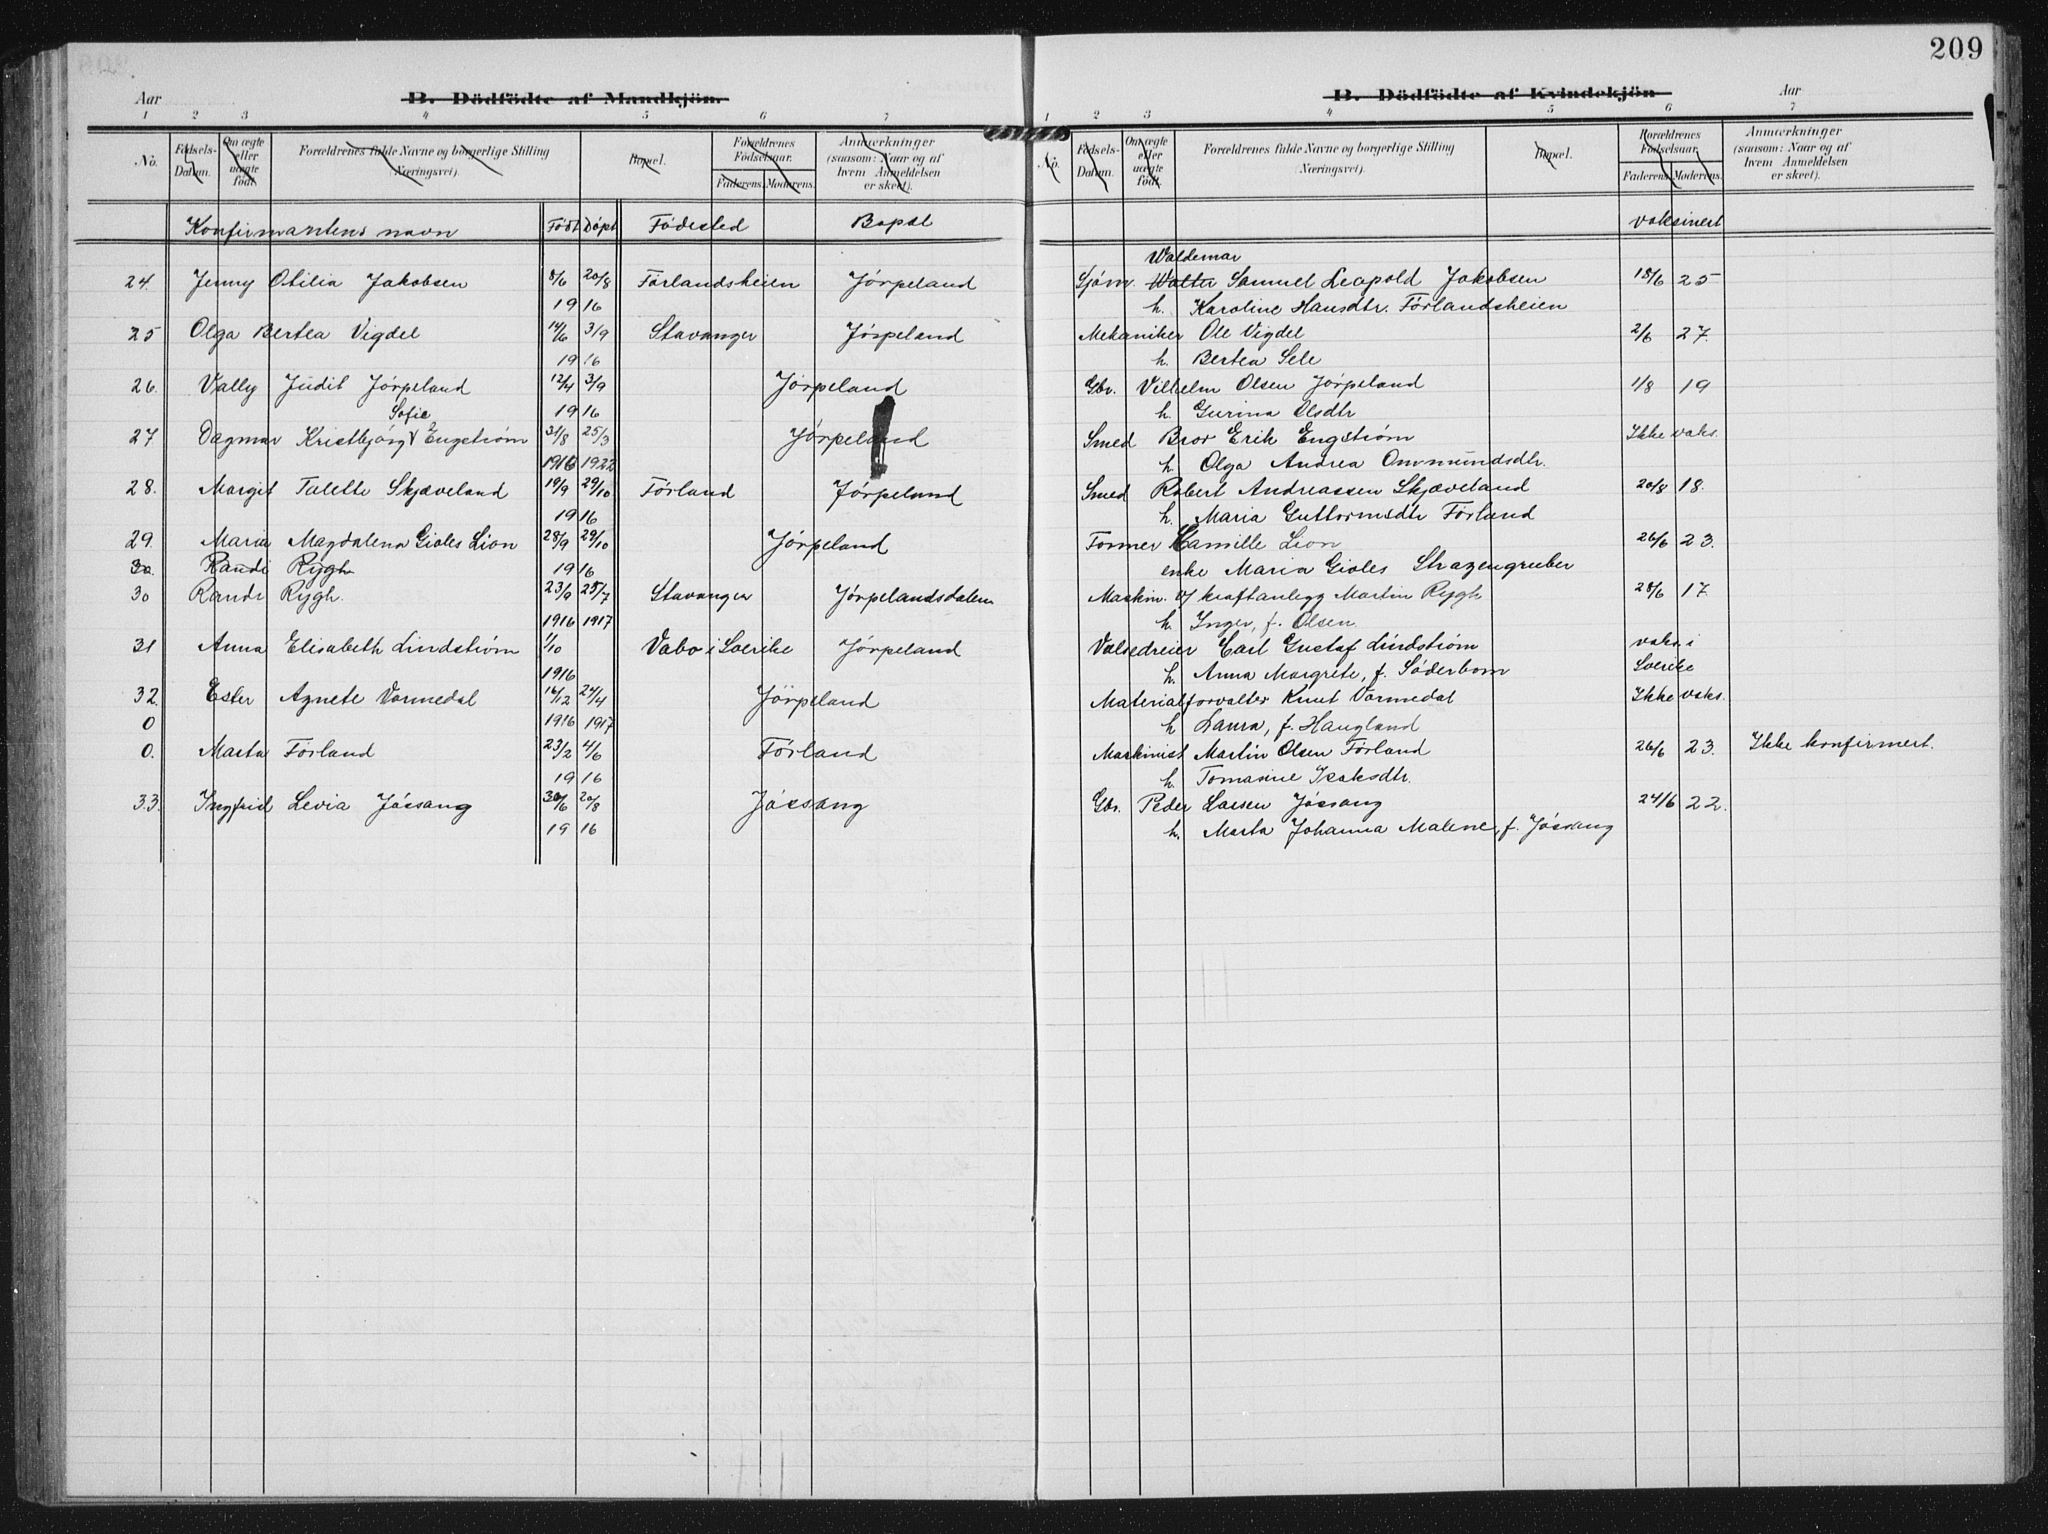 209
Aar B. Dödfödte af Mandkjön. B. Dödfödte af Kvindekjön Aar
1 2 3 4 5 6 7 1 2 3 4 5 6 7
No. Födsels-Datum. Om ægte eller uægte födt. Forældrenes fulde Navne og borgerlige Stilling (Næringsvei). Bopæl. Forældrenes Födselsaar. Faderens. Moderens. Anmærkninger (saasom: Naar og af hvem Anmeldelsen er skeet).
No. Födsels-Datum. Om ægte eller uægte födt. Forældrenes fulde Navne og borgerlige Stilling (Næringsvei). Bopæl. Forældrenes Födselsaar. Faderens. Moderens. Anmærkninger (saasom: Naar og af hvem Anmeldelsen er skeet).
Konfirmantens navn Født Døpt Fødested Bopæl vaksinert
Waldemar
24. Jenny Otilia Jakobsen 8/6 20/8 Førlandsheien Jørpeland Sjøm. Walter Samuel Leopold Jakobsen 18/6 25
19 16 h. Karoline Hansdtr. Førlandsheien
25 Olga Bertea Vigdel 14/6 3/9 Stavanger Jørpeland Mekaniker Ole Vigdel 2/6 27.
19 16 h. Bertea Sele
26. Vally Judit Jørpeland 12/4 3/9 Jørpeland Gbr. Vilhelm Olsen Jørpeland 1/8 19
Sofie 19 16 h. Gurina Olsdtr
27 Dagmar Kristbjørg Engstrøm 31/8 25/3 Jørpeland Smed Bror Erik Engstrøm Ikke vaks.
1916 1922 h. Olga Andrea Ommundsdtr.
28. Margit Talette Skjæveland 19/9 29/10 Førland Jørpeland Smed Robert Andreassen Skjæveland 20/8 18.
19 16 h. Maria Guttormsdtr Førland
29. Maria Magdalena Gioles Lion 28/9 29/10 Jørpeland Former Camille Lion 26/6 23.
30. Randi Rygh 19 16 enke Maria Gioles Strazengruber
30 Randi Rygh. 23/9 25/7 Stavanger Jørpelandsdalen Maskin. v/ kraftanlegg Martin Rygh 28/6 17.
1916 1917 h. Inger, f. Olsen
31 Anna Elisabeth Lindstrøm 1/10 Vabo i Sverike Jørpeland Valsedreier Carl Gustaf Lindstrøm vaks. i
1916 h. Anna Margrete, f. Søderbom Sverike
32. Ester Agnete Varmedal 16/12 24/4 Jørpeland Materialforvalter Knut Varmedal Ikke vaks.
0 1916 1917 h Laura, f. Haugland
0. Marta Førland 23/2 4/6 Førland Maskinist Martin Olsen Førland 26/6 23. Ikke konfirmert.
19 16 h. Tomasine Isaksdtr.
33. Ingfrid Levia Jøssang 30/6 20/8 Jøssang Gbr. Peder Larsen Jøssang 24/6 22.
19 16 h. Marta Johanna Malene, f. Jøssang